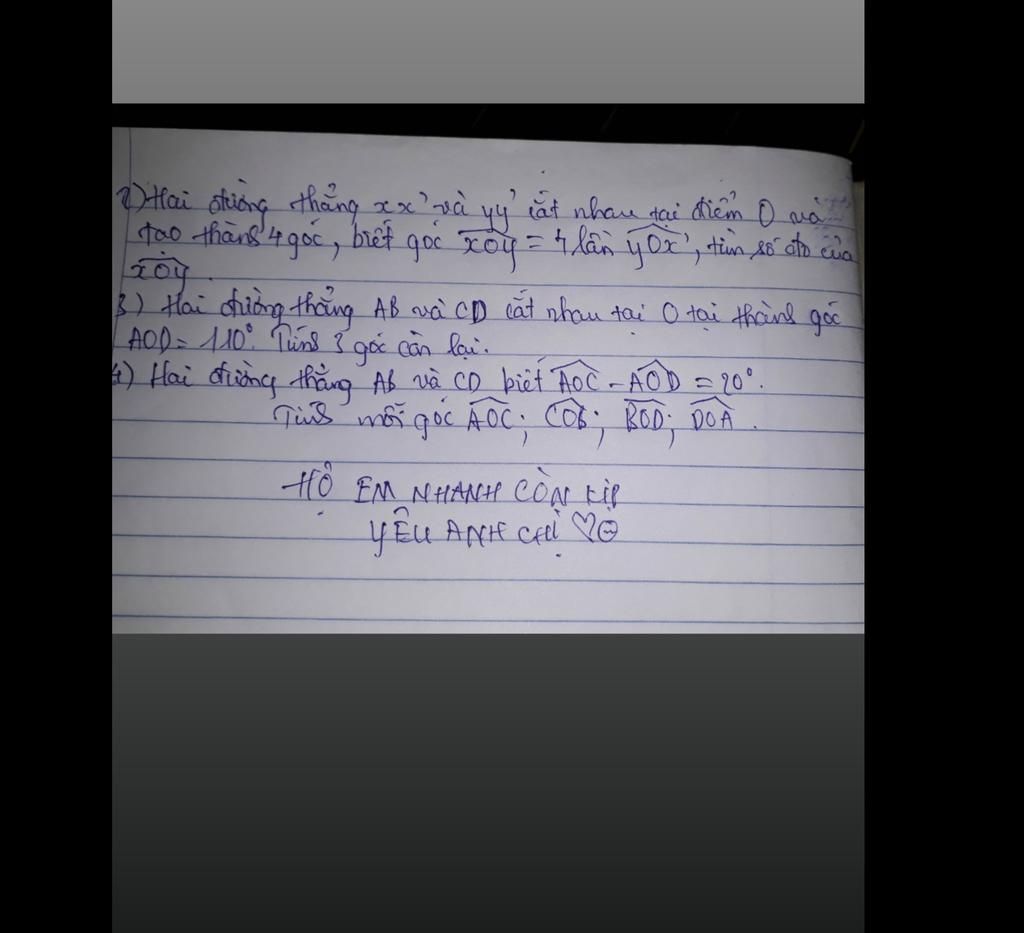 2) Hai đường thẳng xx' và yy' cắt nhau tại điểm O và
tạo thành 4 góc, biết góc xOy = 4 lần yOx', tìm số đo của
xOy.
3) Hai đường thẳng AB và CD cắt nhau tại O tại thành góc
AOD = 110°. Tính 3 góc còn lại.
4) Hai đường thẳng AB và CD biết AOC - AOD = 20°.
Tính mỗi góc AOC; COB; BOD; DOA.
HỘ EM NHANH CÒN KỊP
YÊU ANH CHỊ ♡